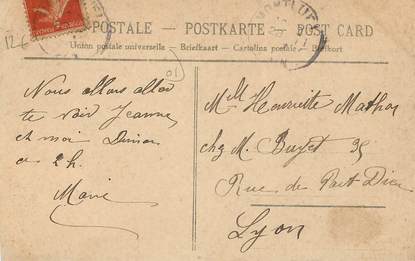 POSTALE — POSTKARTE — POST CARD
Union postale universelle — Briefkaart — Cartolina postale — Brefkort
01
Nous allons aller
te voir Jeanne
et moi Diman
a 2h.
Marie
Mlle Henriette Mathon
chez M. Buyet 35
Rue de Part Dieu
Lyon